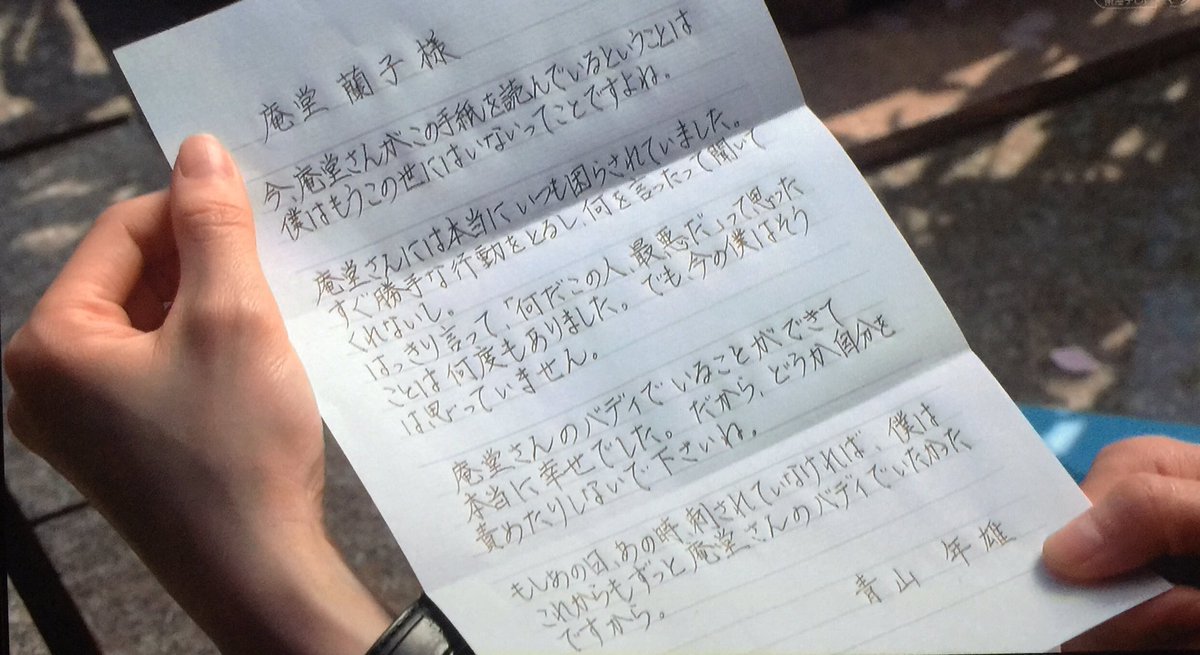 庵堂 蘭子 様
今、庵堂さんがこの手紙を読んでいるということは
僕はもうこの世にはいないってことですよね。
庵堂さんには本当にいつも困らされていました。
すぐ勝手な行動をとるし、何を言ったって聞いて
くれないし。
はっきり言って、「何だこの人、最悪だ」って思った
ことは何度もありました。でも、今の僕はそう
は思っていません。
庵堂さんのバディでいることができて
本当に幸せでした。だから、どうか自分を
責めたりしないで下さいね。
もしあの日、あの時、刺されていなければ、僕は
これからもずっと庵堂さんのバディでいたかった
ですから。
青山 年雄